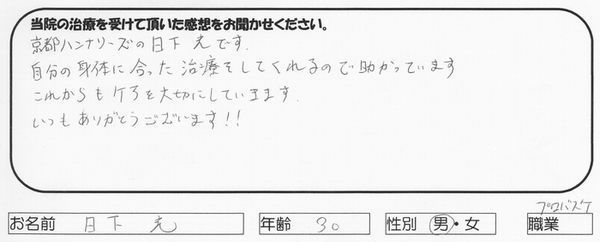 当院の治療を受けて頂いた感想をお聞かせください。
京都ハンナリーズの日下 光です.
自分の身体に合った治療をしてくれるので助かっています
これからもケアを大切にしていきます.
いつもありがとうございます!!
プロバスケ
お名前 日下 光 年齢 30 性別 男・女 職業